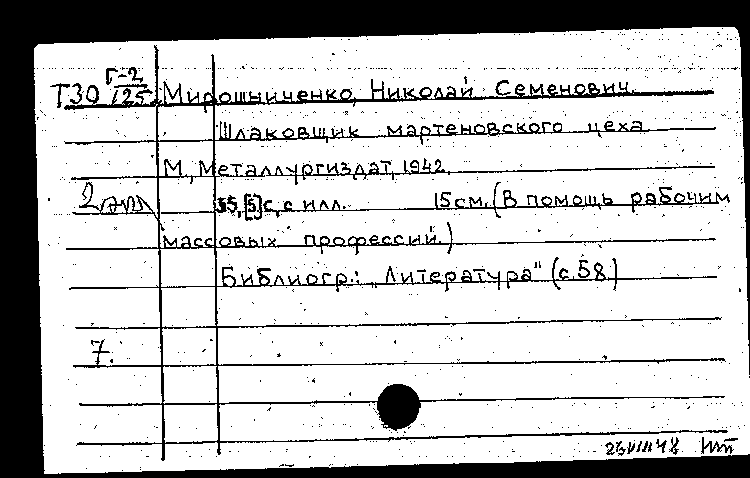 Г-2
Т30 125 Мирошниченко, Николай Семенович.
Шлаковщик мартеновского цеха
М., Металлургиздат, 1942.
55, [5] с, с илл. 15 см. (В помощь рабочим
массовых профессий.)
Библиогр.: „Литература" (с. 58)
7.